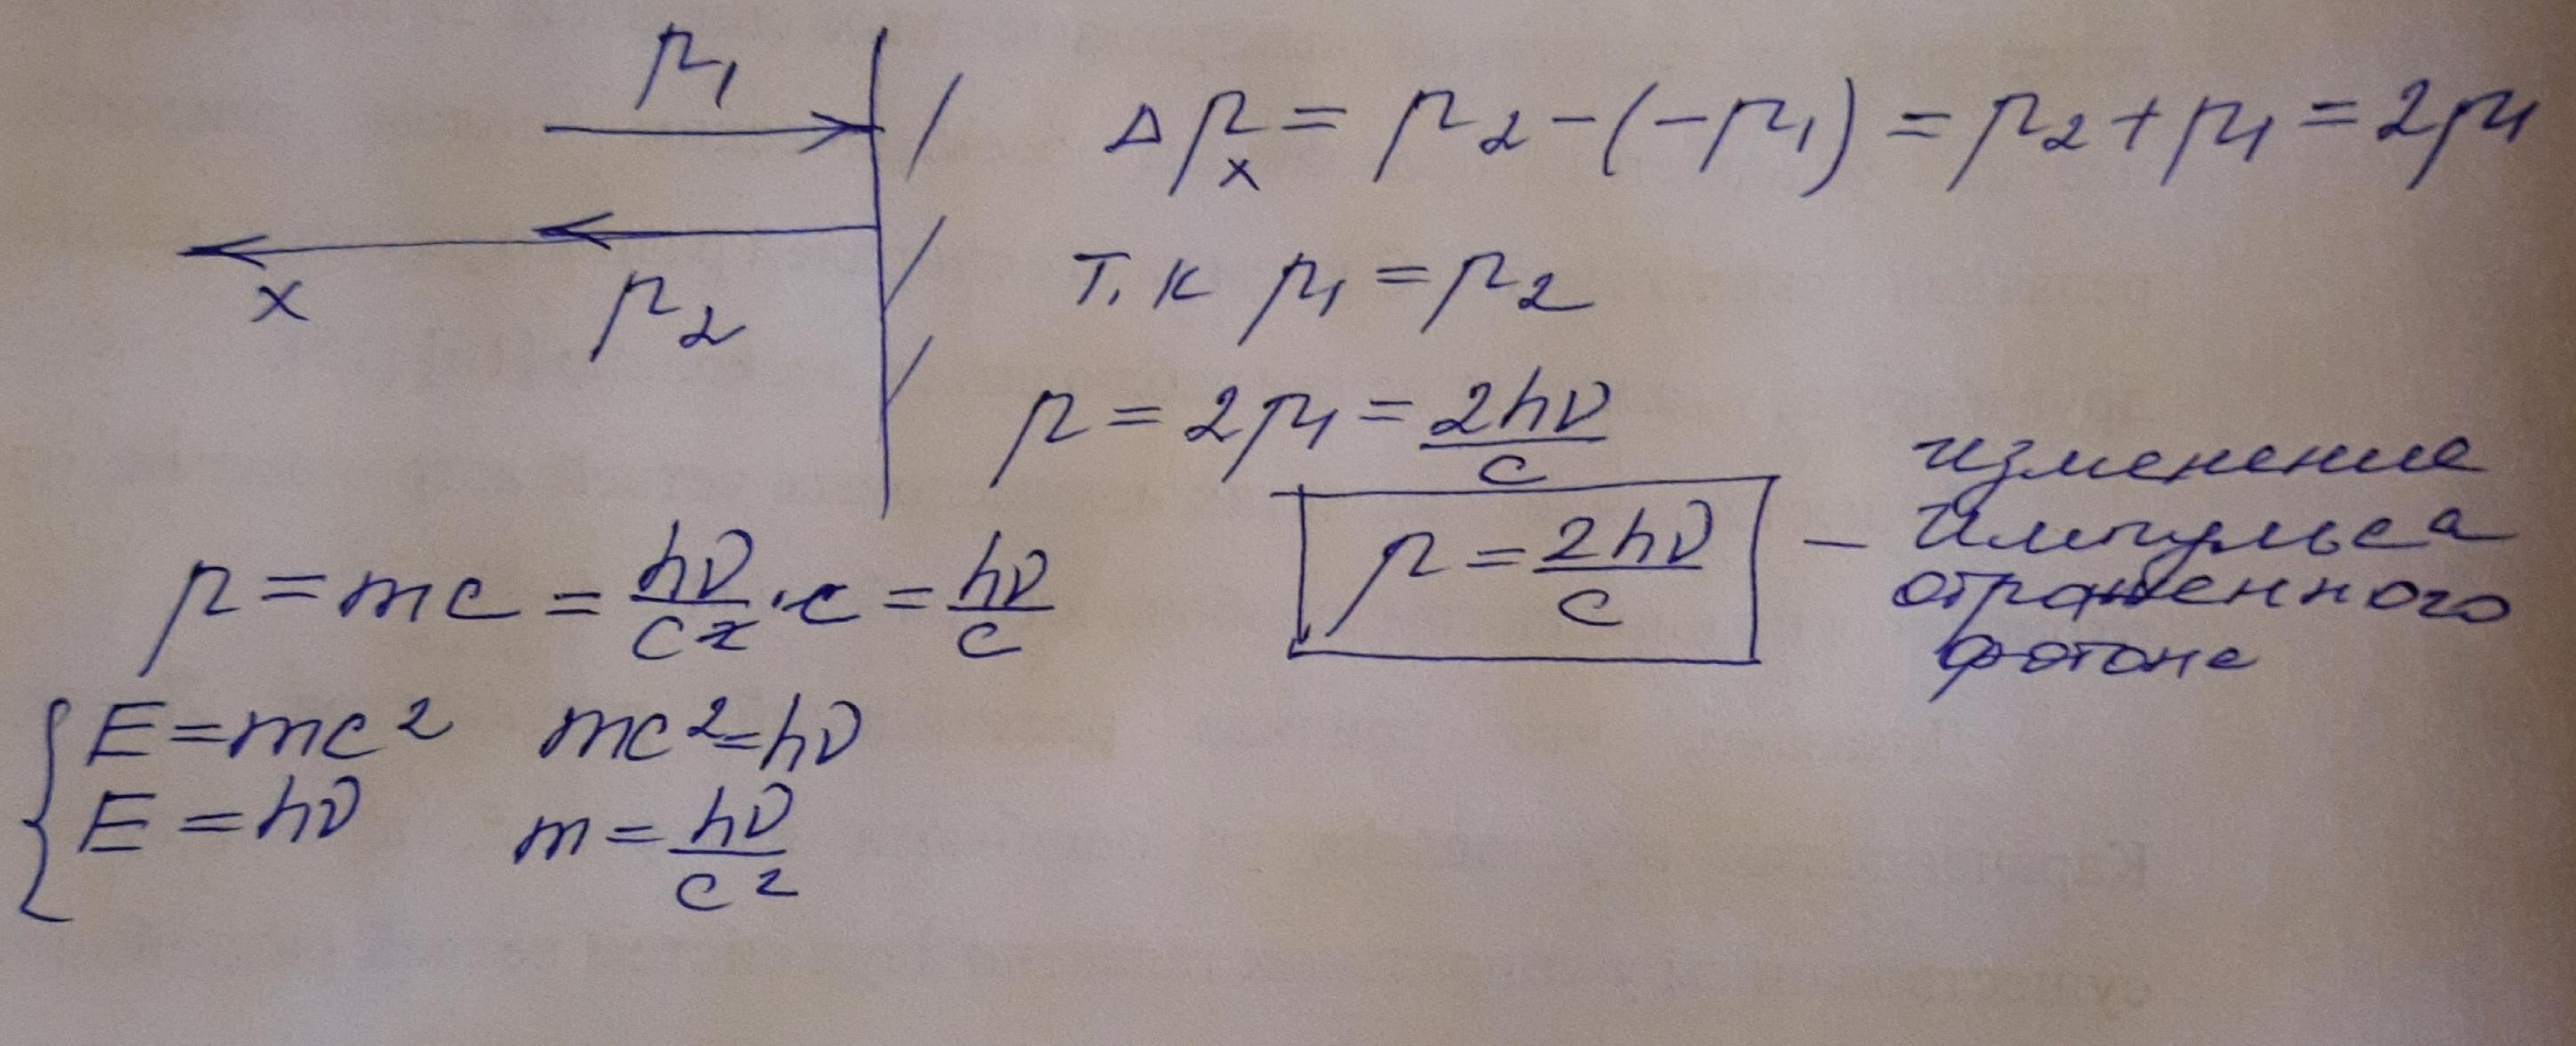 p₁
Δpₓ = p₂ - (-p₁) = p₂ + p₁ = 2p₁
x
p₂
т.к p₁ = p₂
p = 2p₁ = 2hν/c
p = 2hν/c — изменение
импульса
отраженного
фотона
p = mc = hν/c² · c = hν/c
E = mc² mc² = hν
E = hν m = hν/c²